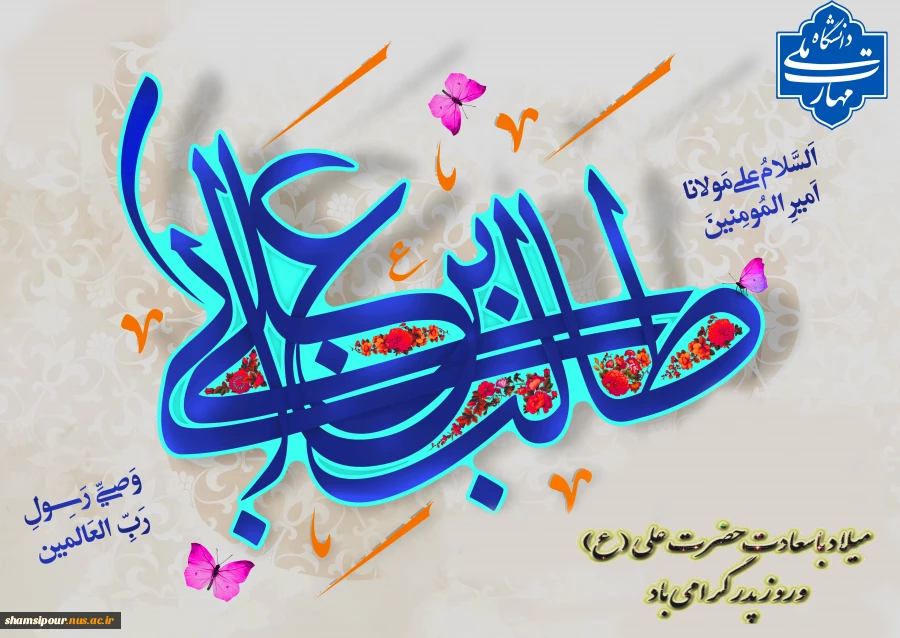 دانشگاه
ملی
مهارت
اَلسَّلامُ عَلي مَولانا
اَميرِ المُومِنينَ
علی بن ابی طالب
وَصيِّ رَسولِ
رَبِّ العَالمين
میلاد با سعادت حضرت علی (ع)
و روز پدر گرامی باد
shamsipour.nus.ac.ir